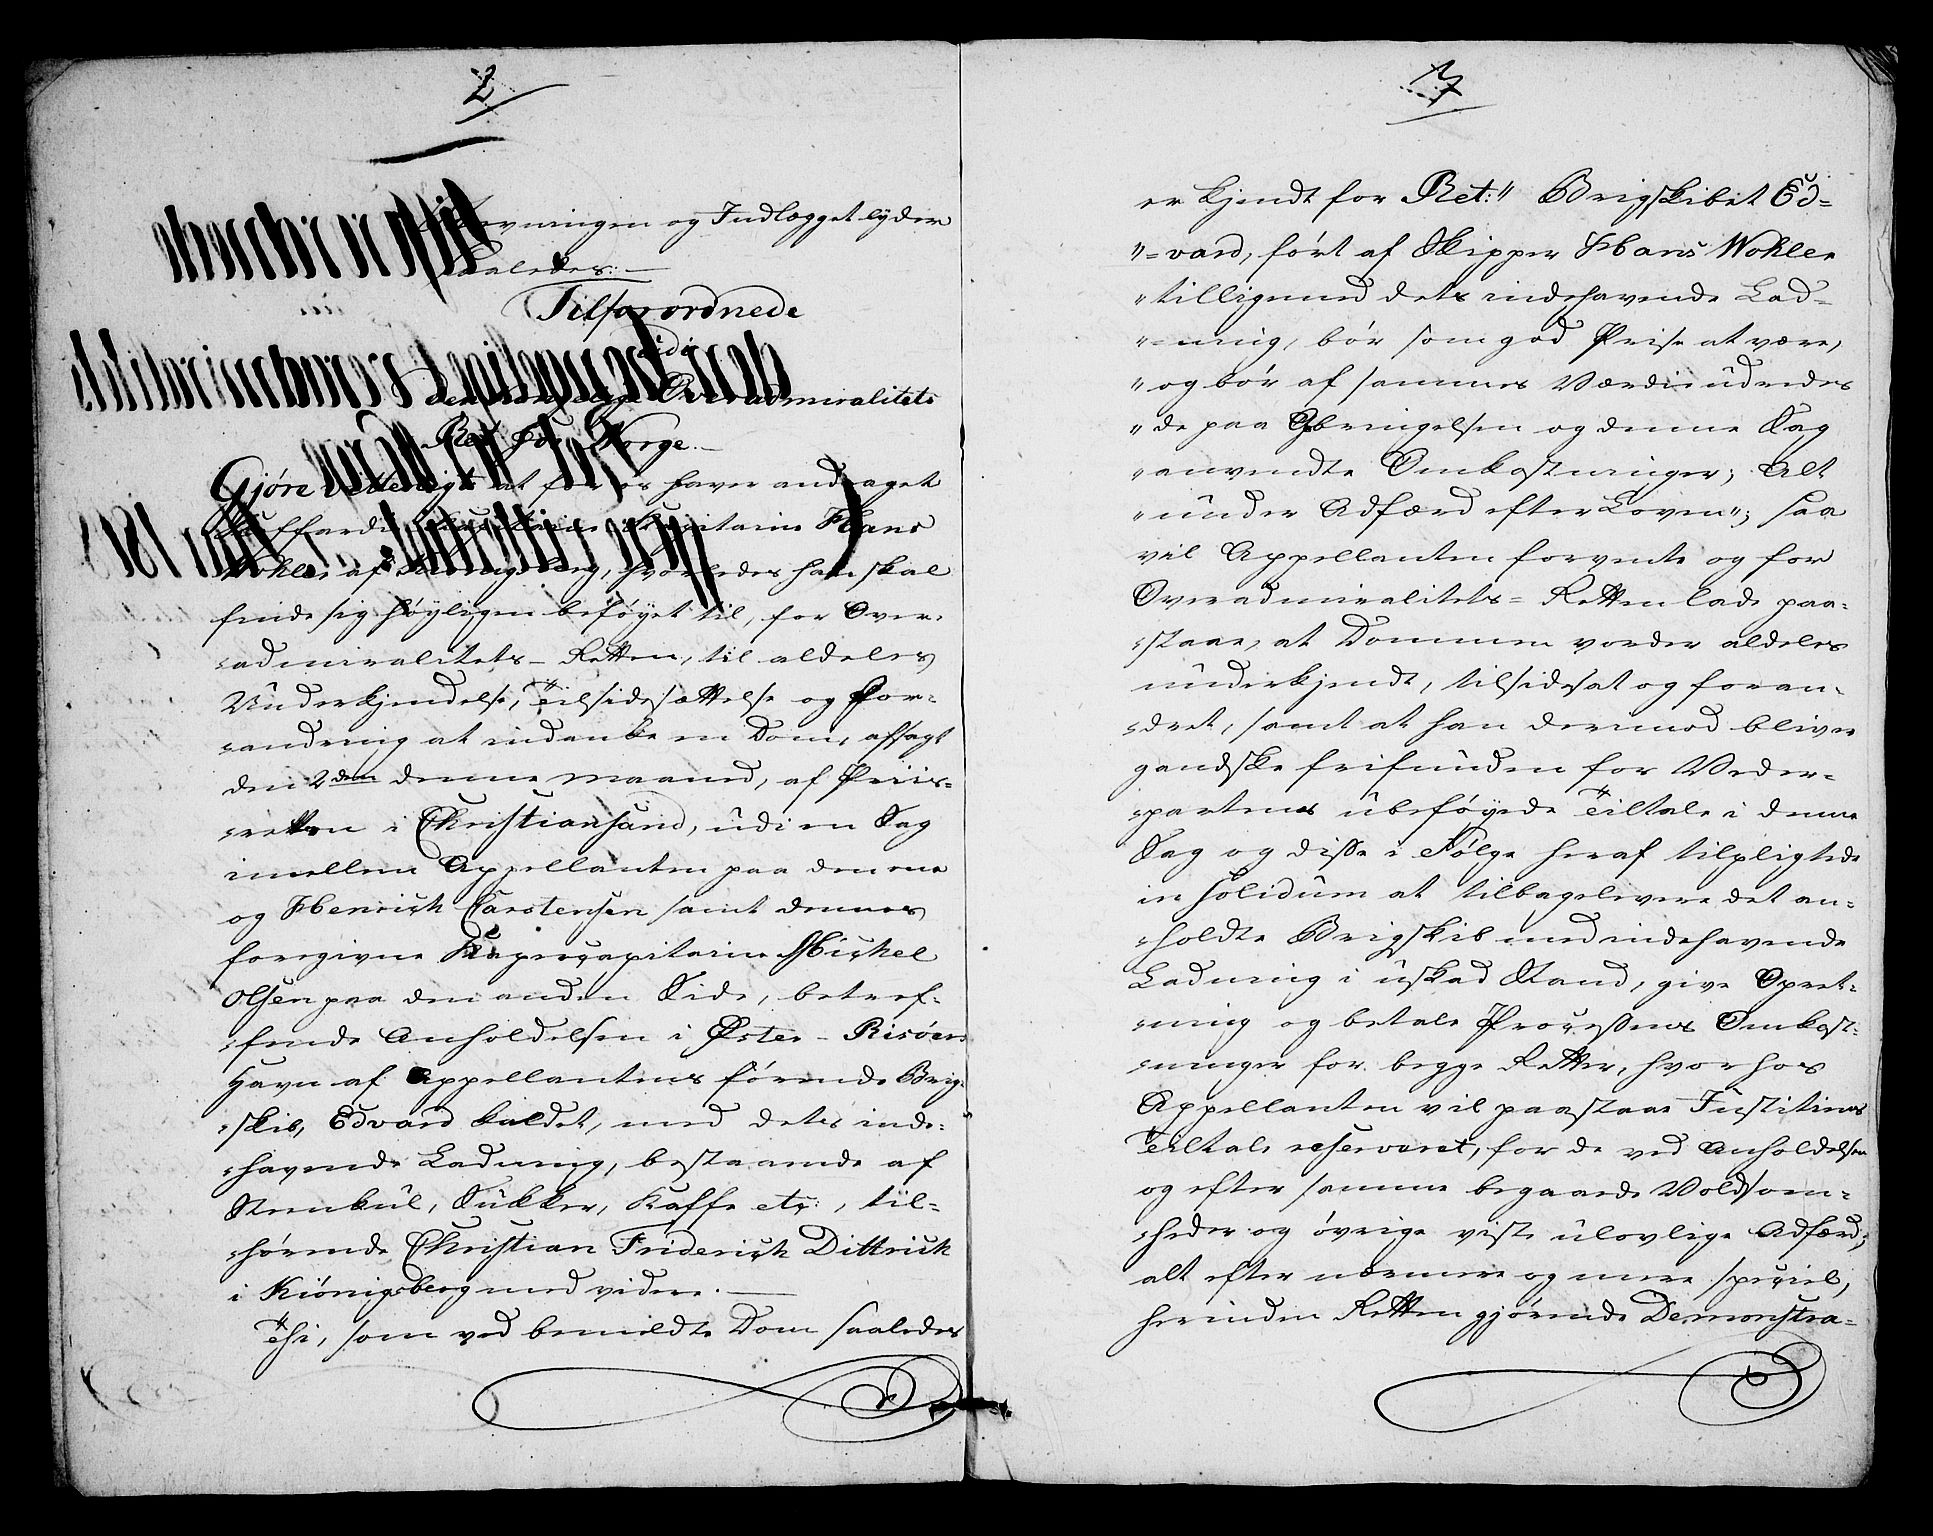 2
Stævningen og Indlægget lyder
saaledes:—
Tilforordnede
udi
den kongelige Overadmiralitets
Ret for Norge.—
Gjøre Vitterligt at for os haver andraget
Hans
Wohler af Kiönigsberg, hvorledes han skal
finde sig høyligen beføyet til, for Over-
admiralitets-Retten, til aldeles
Underkjendelse, Tilsidesættelse og For-
andring at indanke en Dom, afsagt
den 2den denne Maaned, af Priis-
retten i Christiansand, udi en Sag
imellem Appellanten paa den ene
og Henrich Carstensen samt dennes
foregivne Kapercapitaine Michel
Olsen paa den anden Side, betref-
fende Anholdelsen i Øster-Risöers
Havn af Appellantens førende Brig-
skib, Edvard kaldet, med dets inde-
havende Ladning, bestaaende af
Steenkul, Sukker, Kaffe etc:, til-
hørende Christian Friderich Dittrich
i Kiönigsberg med videre.—
Thi, som ved bemeldte Dom saaledes
3
er kjendt for Ret:" Brigskibet Ed=
"=vard, ført af Skipper Hans Wohler
"tilligemed dets indehavende Lad=
"=ning, bør som god Prise at være,
"og bør af sammes Værdie udredes
"de paa Opbringelsen og denne Sag
"anvendte Omkostninger; Alt
"under Adfærd efter Loven"; saa
vil Appellanten forvente og for
Overadmiralitets=Retten lade paa-
staae, at Dommen vorder aldeles
underkjendt, tilsidesat og foran-
dret, samt at han derimod bliver
gandske frifunden for Veder-
partens ubeføyede Tiltale i denne
Sag og disse i Følge heraf tilpligtede
in solidum at tilbagelevere det an-
holdte Brigskib med indehavende
Ladning i uskad Stand, give Opret-
ning og betale Processens Omkost-
ninger for begge Retter, hvorhos
Appellanten vil paastaae Justitiens
Tiltale reserveret, for de ved Anholdelsen
og efter samme begaaede Voldsom-
heder og øvrige viste ulovlige Adfærd;
alt efter nærmere og mere speciel,
herinden Retten gjørende Demonstra=